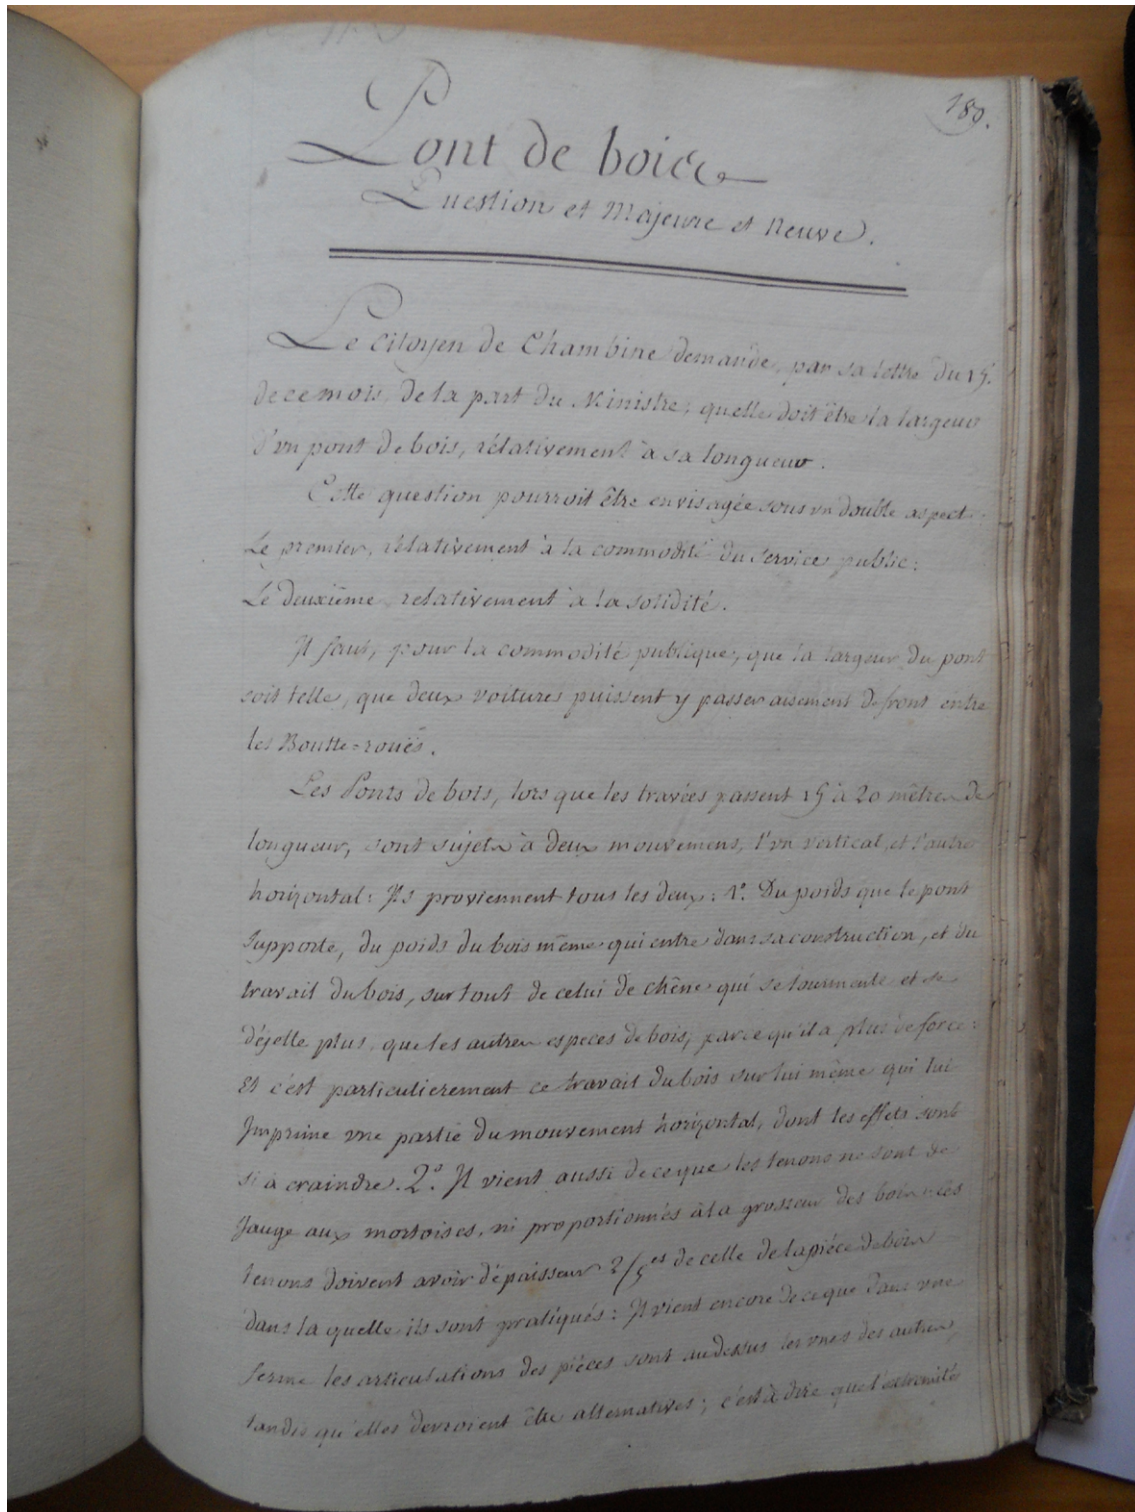 189.
Pont de bois
Question et Majeure et Neuve.
Le Citoyen de Chambine demande, par sa lettre du 15.
de ce mois, de la part du Ministre; quelle doit être la largeur
d'un pont de bois, rélativement à sa longueur.
Cette question pourroit être envisagée sous un double aspect
Le premier, rélativement à la commodité du service public:
Le deuxiême relativement à la solidité.
Il faut, pour la commodité publique, que la largeur du pont
soit telle, que deux voitures puissent y passer aisement de front entre
les Boutte=rouës.
Les Ponts de bois, lors que les travées passent 15 à 20 mêtres de
longueur, sont sujets à deux mouvemens, l'un vertical, et l'autre
horizontal: Ils proviennent tous les deux: 1°. Du poids que le pont
supporte, du poids du bois même qui entre dans sa construction, et du
travail du bois, sur tout de celui de chêne qui se tourmente et se
déjette plus, que les autres especes de bois, parce qu'il a plus de force:
Et c'est particulierement ce travail du bois sur lui même qui lui
Imprime une partie du mouvement horizontal, dont les effets sont
si à craindre. 2°. Il vient aussi de ce que les tenons ne sont de
Jauge aux mortoises, ni proportionnés à la grosseur des bois: ces
tenons doivent avoir d'épaisseur 2/5es de celle de la piéce de bois
dans la quelle ils sont pratiqués: Il vient encore de ce que dans une
ferme les articulations des piéces sont au dessus les unes des autres,
tandis qu'elles devroient être alternatives; c'est à dire que l'extremité